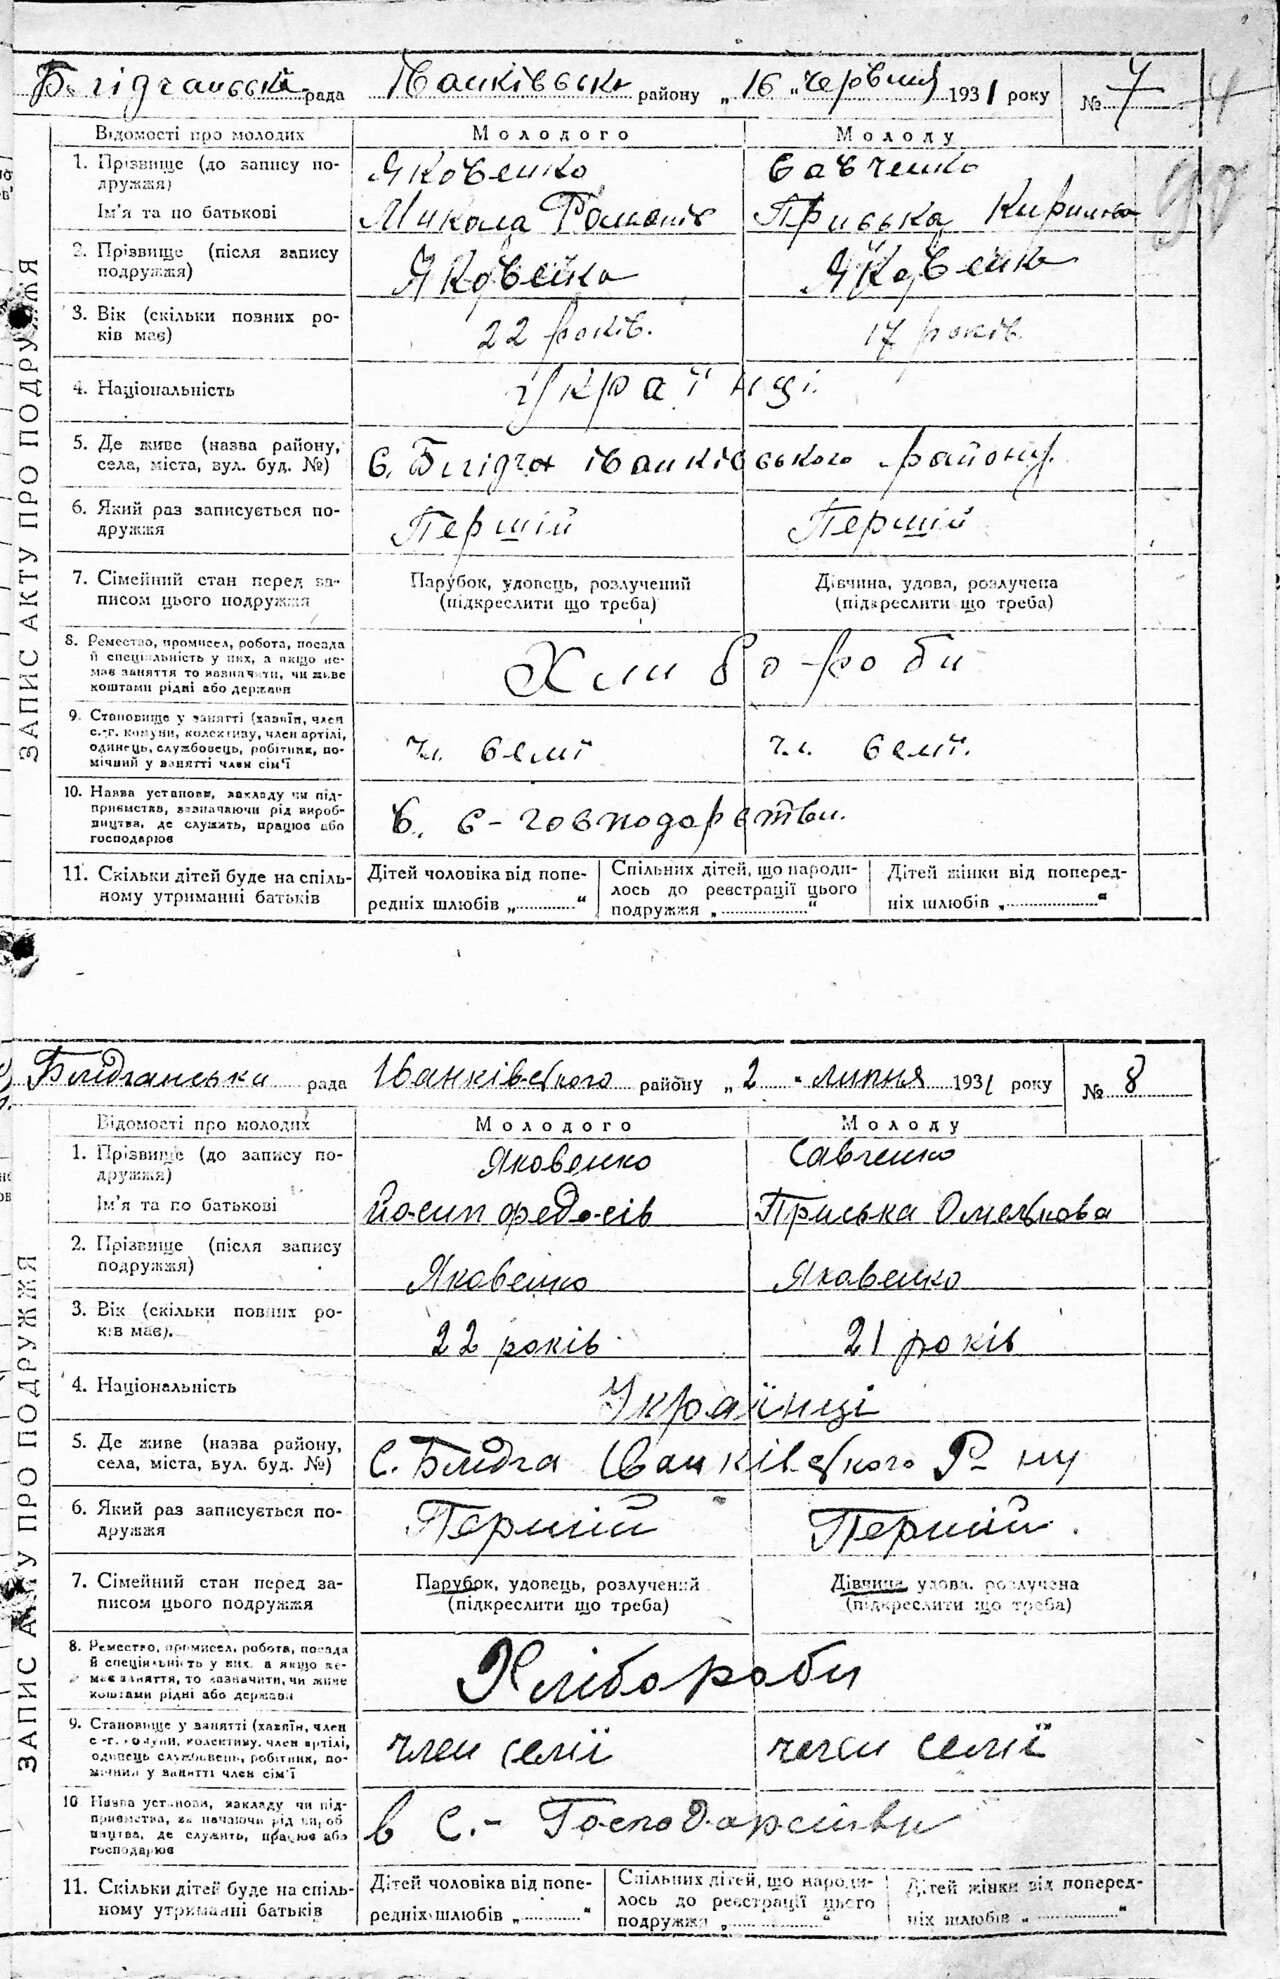 Блідчанська рада Іванківськ району „16" червня 1931 року № 7
4
90
ЗАПИС АКТУ ПРО ПОДРУЖЖЯ
Відомості про молодих Молодого Молоду
1. Прізвище (до запису по- Яковенко Савченко
дружжя)
Ім'я та по батькові Микола Романів Приська Кирилова
2. Прізвище (після запису Яковенко Яковенко
подружжя)
3. Вік (скільки повних ро- 22 років. 17 років
ків має)
4. Національність Українці
5. Де живе (назва району, С. Блідча Іванківського району
села, міста, вул. буд. №)
6. Який раз записується по- Першій Першій
дружжя
7. Сімейний стан перед за- Парубок, удовець, розлучений Дівчина, удова, розлучена
писом цього подружжя (підкреслити що треба) (підкреслити що треба)
8. Ремество, промисел, робота, посада
й спеціальність у них, а якщо не- Хлиборо-роби
має заняття то зазначити, чи живе
коштами рідні або держави
9. Становище у занятті (хазяїн, член
с.-г. комуни, колективу, член артілі, чл. семї чл. семї.
одинець, службовець, робітник, по-
мічний у занятті член сім'ї
10. Назва установи, закладу чи під-
приємства, зазначаючи рід вироб- В. с-господарстви.
ництва, де служить, працює або
господарює
11. Скільки дітей буде на спіль- Дітей чоловіка від попе- Спільних дітей, що народи- Дітей жінки від поперед-
ному утриманні батьків редніх шлюбів „ " лось до реєстрації цього ніх шлюбів „ "
подружжя „ "
Блідчанська рада Іванківського району „2" липня 1931 року № 8
ЗАПИС АКТУ ПРО ПОДРУЖЖЯ
Відомості про молодих Молодого Молоду
1. Прізвище (до запису по- Яковенко Савченко
дружжя)
Ім'я та по батькові Йосип Федосів Приська Омелькова
2. Прізвище (після запису Яковенко Яковенко
подружжя)
3. Вік (скільки повних ро- 22 років 21 років
ків має).
4. Національність Українці
5. Де живе (назва району, С. Блідча Іванківського Р-ну
села, міста, вул. буд. №)
6. Який раз записується по- Першій Першій.
дружжя
7. Сімейний стан перед за- Парубок, удовець, розлучений Дівчина, удова, розлучена
писом цього подружжя (підкреслити що треба) (підкреслити що треба)
8. Ремество, промисел, робота, посада
й спеціальність у них, а якщо не- Хлібороби
має заняття, то зазначити, чи живе
коштами рідні або держави
9. Становище у занятті (хазяїн, член
с.-г. комуни, колективу, член артілі, член семї член семї
одинець службовець, робітник, по-
мічний у занятті член сім'ї
10 Назва установи, закладу чи під-
приємства, зазначаючи рід вироб- в С.- Господарстви
ництва, де служить, працює або
господарює
11. Скільки дітей буде на спіль- Дітей чоловіка від попе- Спільних дітей, що народи- Дітей жінки від поперед-
ному утриманні батьків редніх шлюбів „ " лось до реєстрації цього ніх шлюбів „ "
подружжя „ "